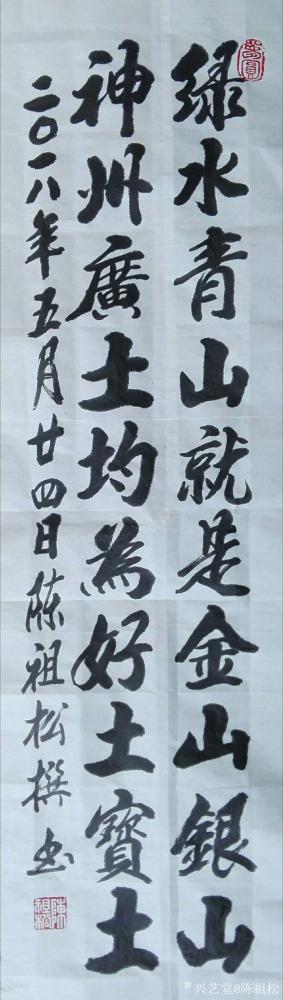 绿水青山就是金山银山
神州廣土均為好土寶土
二〇一八年五月廿四日陈祖松撰书
陈祖松
兴艺堂@陈祖松